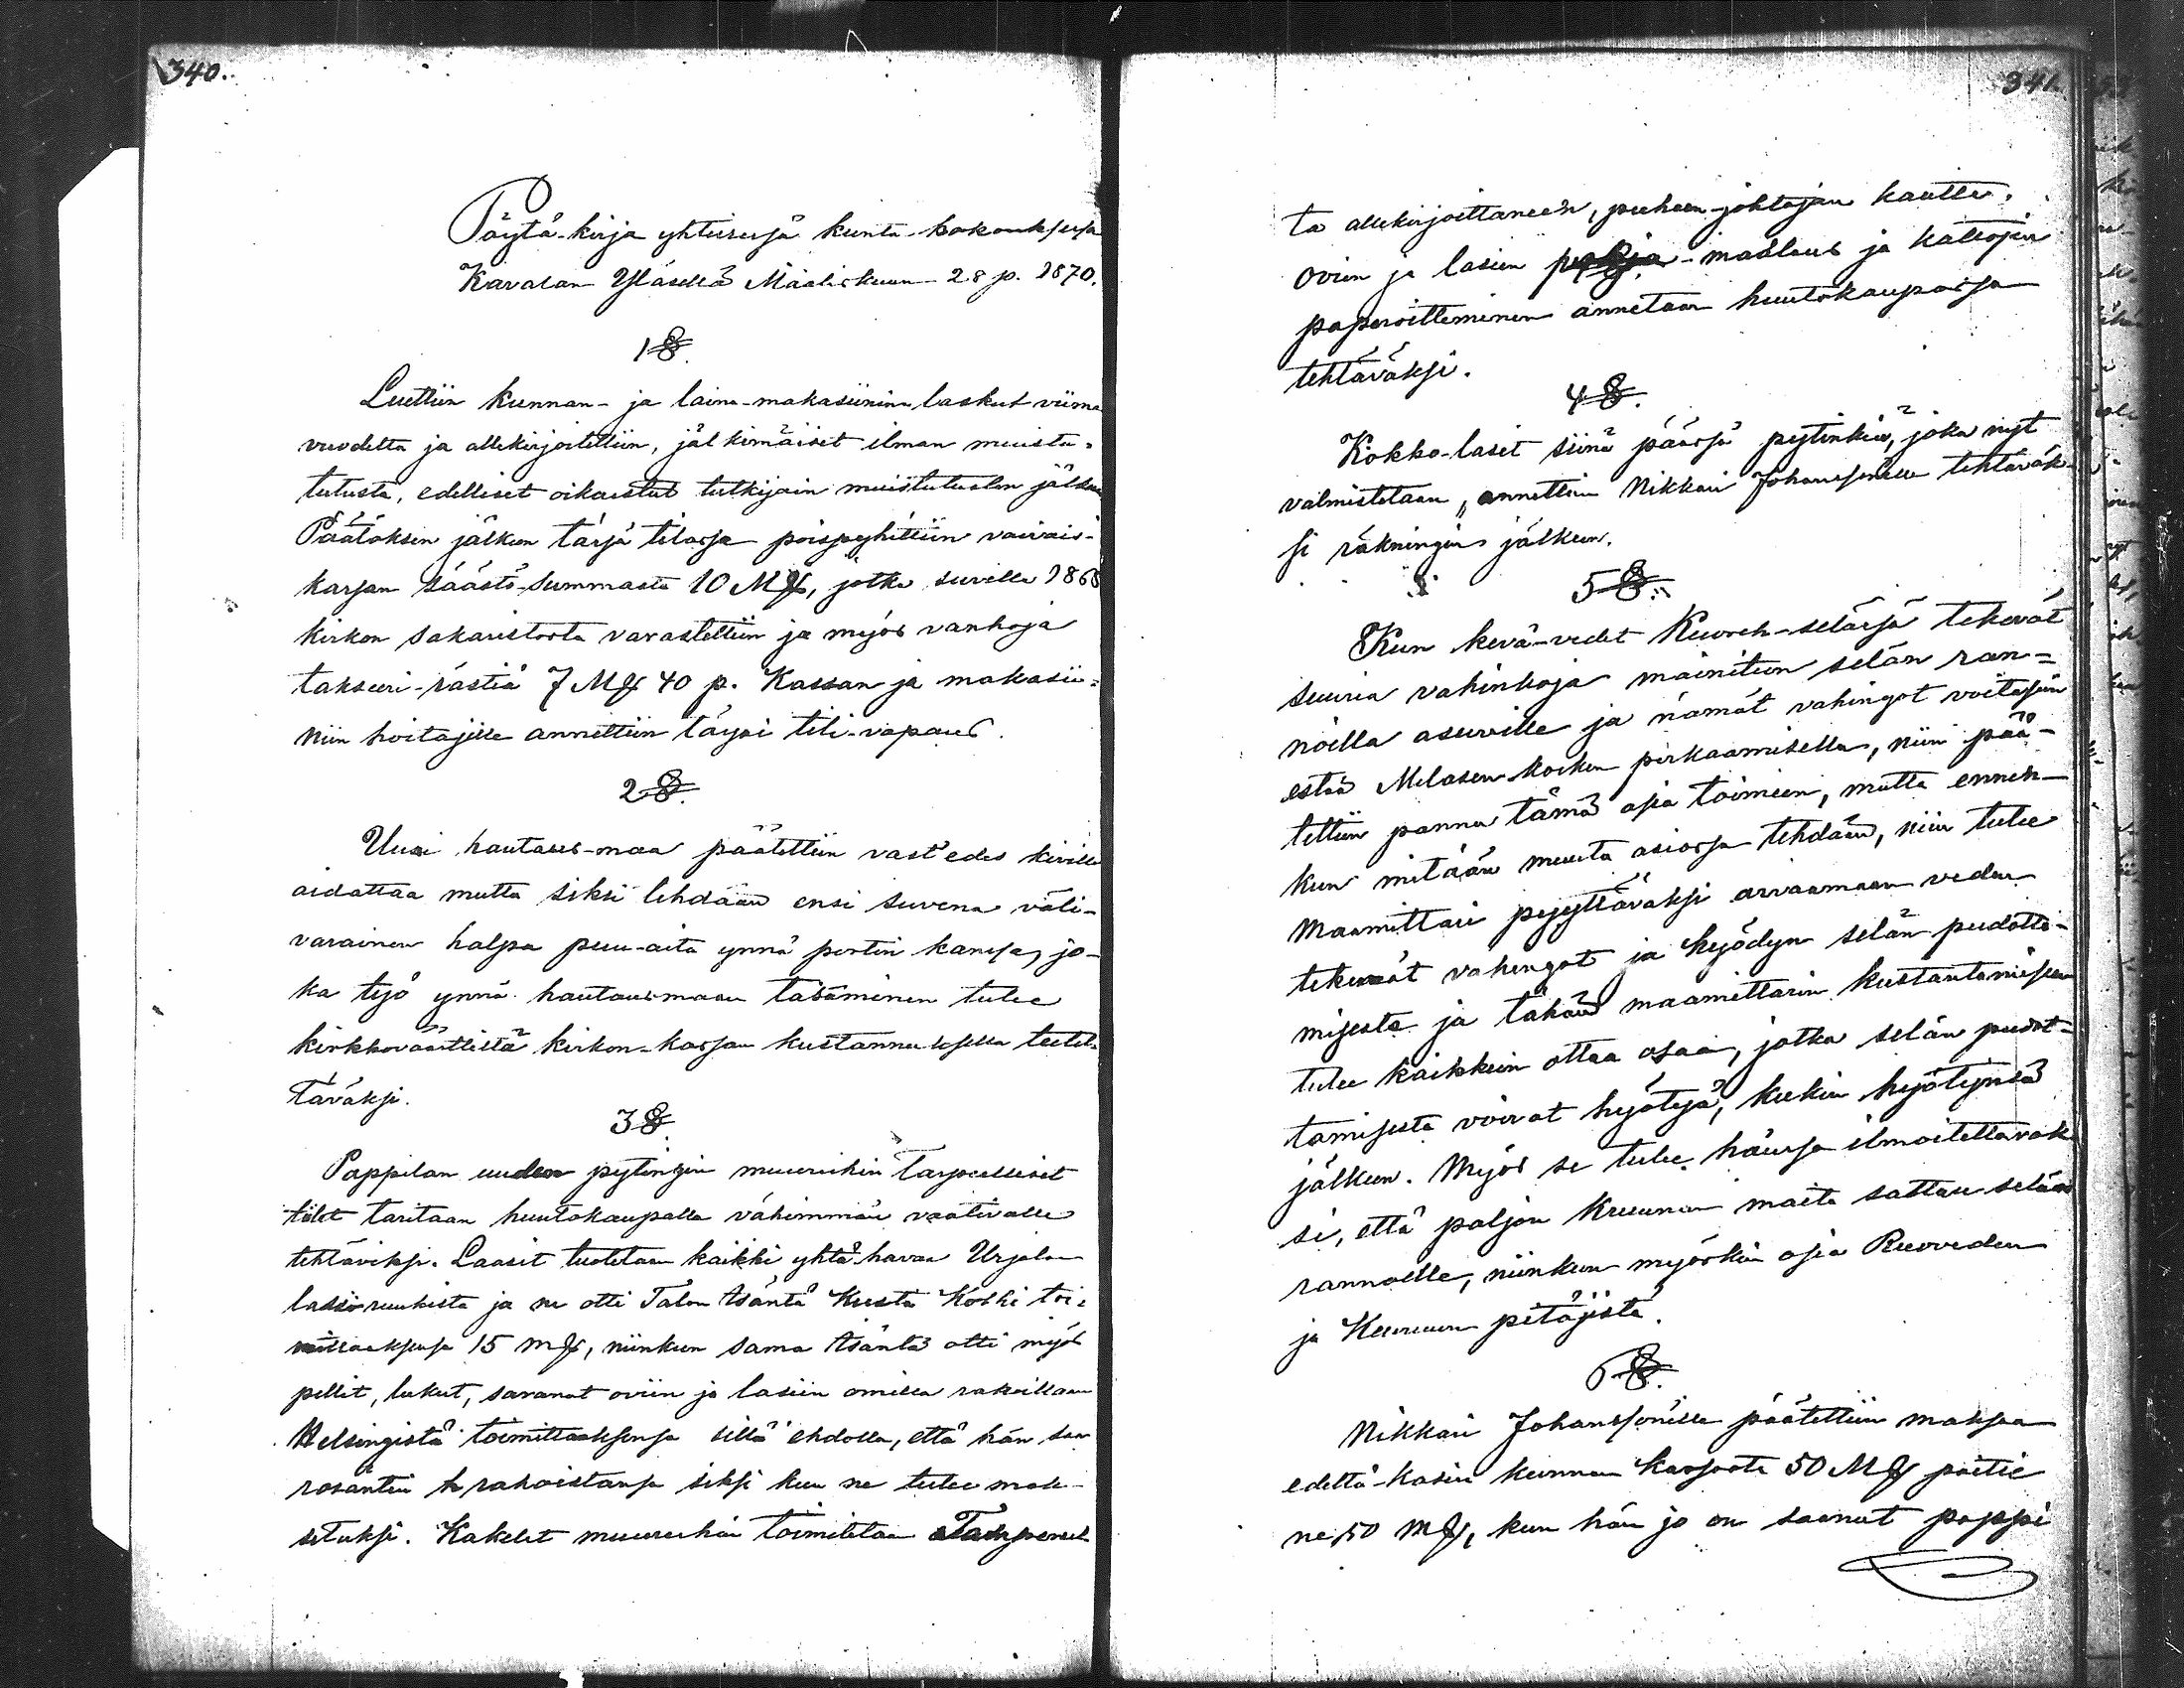 340.
Pöytä-kirja yhteisessä kunta-kokouksessa
Kavalan Yläsellä Maaliskuun 28 p. 1870.
1 §.
Luettiin kunnan- ja laina-makasiinin laskut viime
vuodelta ja allekirjoitettiin, jälkimäiset ilman muistu-
tutusta, edelliset oikaistut tutkijain muistutusten jälkeen
Päätöksen jälkeen tässä tilassa poispyhittiin vaivais-
kassan säästö-summasta 10 Mk, jotka suvella 1868
kirkon sakaristosta varastettiin ja myös vanhoja
takseeri-rästiä 7 Mk 40 p. Kassan ja makasii-
niin hoitajille annettiin täysi tili-vapaus.
2 §.
Uusi hautaus-maa päätettiin vast'edes kivillä
aidattaa mutta siksi tehdään ensi suvena väli-
varainen halpa puu-aita ynnä portin kanssa, jo-
ka työ ynnä hautausmaan tasaminen tulee
kirkkoväärtiltä kirkon-kassan kustannuksella teetet-
täväksi.
3 §.
Pappilan uuden pytingin muureihin tarpeelliset
tiilet taritaan huutokaupalla vähimmän vaativalle
tehtäviksi. Laasit tuotetaan kaikki yhtä havaa Urjalan
lassiruukista ja ne otti Talon Isäntä Kusta Kolhi toi-
mittaaksensa 15 mk, niinkuin sama Isäntä otti myös
pellit, lukut, saranat oviin ja lasiin omilla rahoillaan
Helsingistä toimittaaksensa sillä ehdolla, että hän saa
rosäntin rahoistansa siksi kun ne tulee mak-
setuksi. Kakelit muureihin toimitetaan Tampereel-
341.
ta allekirjoittaneen, puheen-johtajan kautta.
Ovien ja lasien maalaus ja kattojen
paperoitteminen annetaan huutokaupassa
tehtäväksi.
4 §.
Kokko-lasit siinä päässä pytinkiä, joka nyt
valmistetaan, annettiin Nikkari Johanssonille tehtäväk-
si räkningin jälkeen.
5 §.
Kun kevä-vedet Keuroh-selässä tekevät
suuria vahinkoja mainitun selän ran-
noilla asuville ja nämät vahingot voitasiin
estää Melasen kosken perkaamisella, niin pää-
tettiin panna tämä asia toimeen, mutta ennen-
kun mitään muuta asiassa tehdään, niin tulee
Maamittari pyyttäväksi arvaamaan veden
tekemät vahingot ja hyödyn selän pudotta-
misesta ja tähän maamittarin kustantamiseen
tulee kaikkein ottaa osaa, jotka selän pudot-
tamisesta voivat hyötyä, kukin hyötynsä
jälkeen. Myös se tulee hänessä ilmoitettavak-
si, että paljon Kruunun maita sattuu selän
rannoille, niinkuin myöskin osia Ruoveden
ja Keuruun pitäjistä.
6 §.
Nikkari Johanssonille päätettiin maksaa
edeltä-käsin kunnan kassasta 50 Mk paitsi
ne 50 mk, kun hän jo on saanut pappi